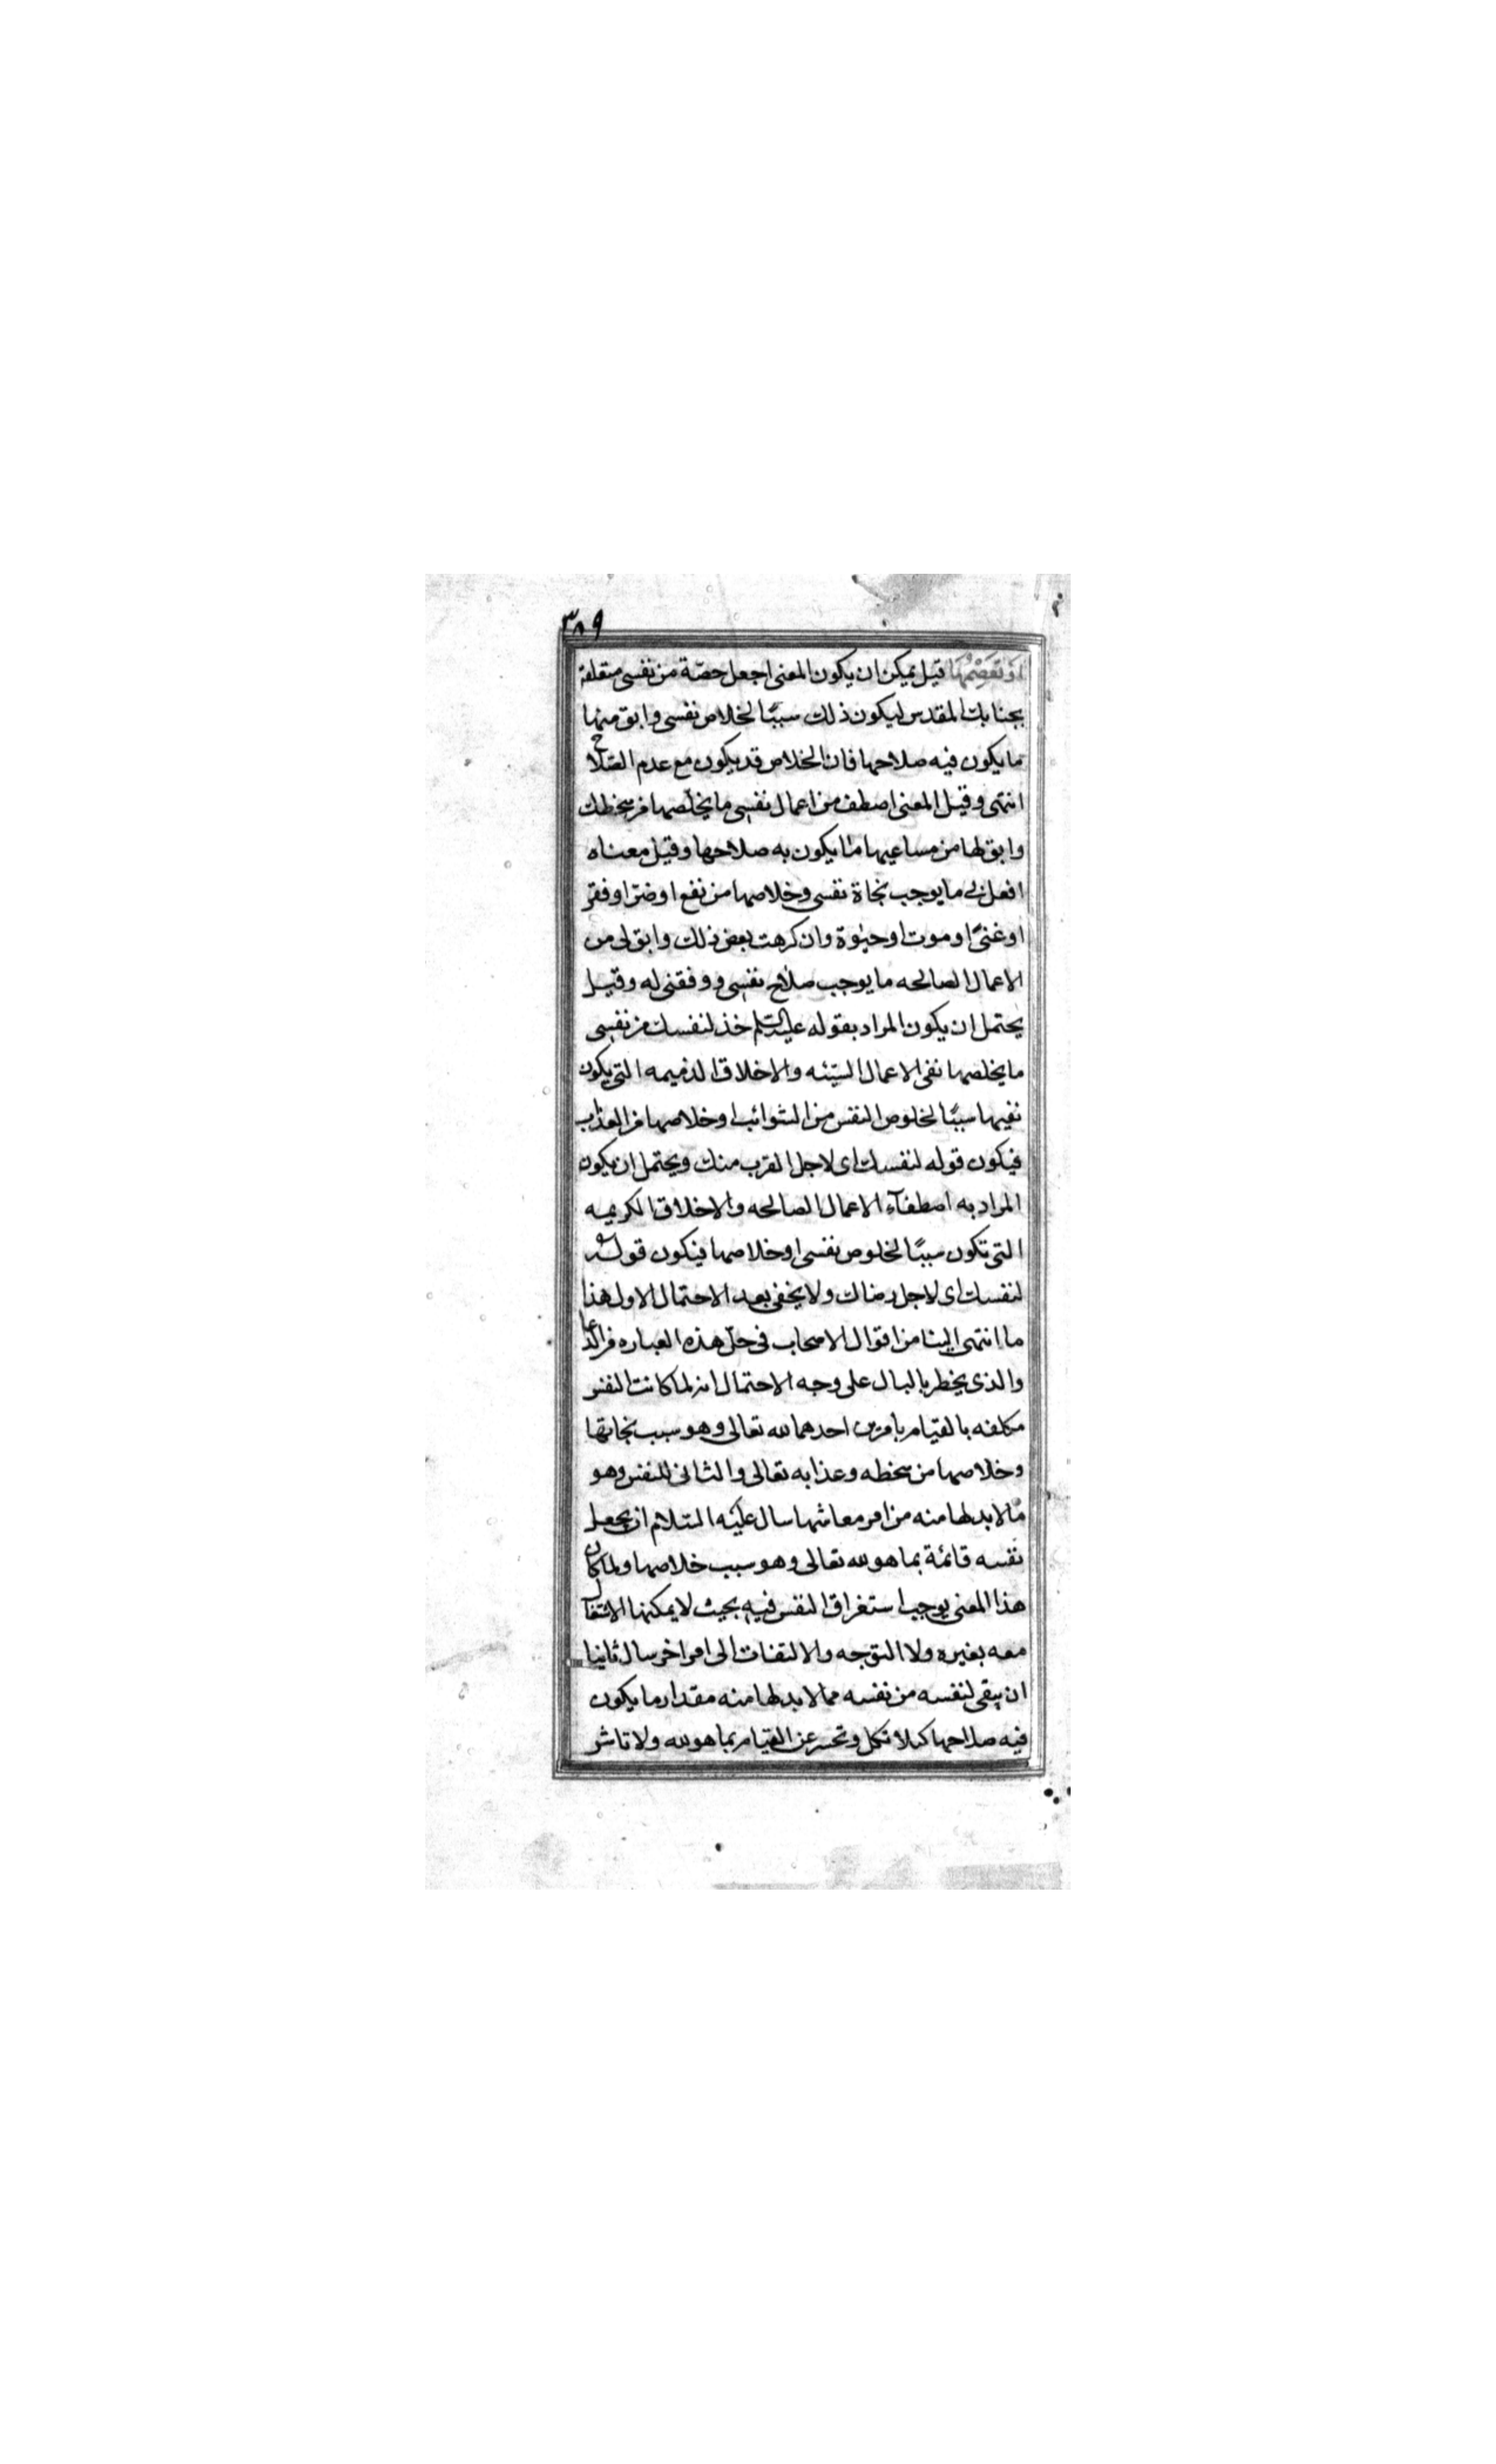 ٣٨٩
او تعصمها قيل يمكن ان يكون المعنى اجعل حصّة من نفسى متعلقة
بجنابك المقدس ليكون ذلك سببًا لخلاص نفسى وابق منها
ما يكون فيه صلاحها فان الخلاص قد يكون مع عدم الصّلاح
انتهى وقيل المعنى اصطف من اعمال نفسى ما يخلّصها من سخطك
وابق لها من مساعيها ما يكون به صلاحها وقيل معناه
افعل بى ما يوجب نجاة نفسى وخلاصها من نفع او ضرّ او فقر
او غنىً او موت او حيوة وان كرهت بعض ذلك وابق لى من
الاعمال الصالحه ما يوجب صلاح نفسى ووفقنى له وقيل
يحتمل ان يكون المراد بقوله عليه السّلم خذ لنفسك من نفسى
ما يخلصها نفى الاعمال السيّئه والاخلاق الذميمه التى يكون
نفيها سببًا لخلوص النفس من الشوائب او خلاصها من العذاب
فيكون قوله لنفسك اى لاجل القرب منك ويحتمل ان يكون
المراد به اصطفآء الاعمال الصالحه والاخلاق الكريمه
التى تكون سببًا لخلوص نفسى او خلاصها فيكون قوله
لنفسك اى لاجل رضاك ولا يخفى بعد الاحتمال الاول هذا
ما انتهى الينا من اقوال الاصحاب فى حلّ هذه العباره من الدعا
والذى يخطر بالبال على وجه الاحتمال انه لما كانت النفس
مكلفه بالقيام بامرين احدهما لله تعالى وهو سبب نجاتها
وخلاصها من سخطه وعذابه تعالى والثانى للنفس وهو
ما لا بد لها منه من امر معاشها سال عليه السّلام ان يجعل
نفسه قائمة بما هو لله تعالى وهو سبب خلاصها ولما كان
هذا المعنى يوجب استغراق النفس فيه بحيث لا يمكنها الاشتغال
معه بغيره ولا التوجه والالتفات الى امر اخر سال ثانيا
ان يبقى لنفسه من نفسه مما لا بد لها منه مقدار ما يكون
فيه صلاحها كيلا تكل وتحسر عن القيام بما هو لله ولا